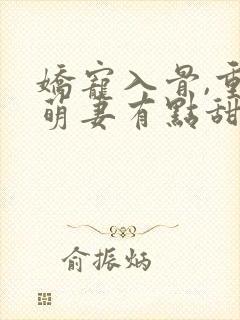 嬌寵入骨,重
萌妻有點甜
俞振炳